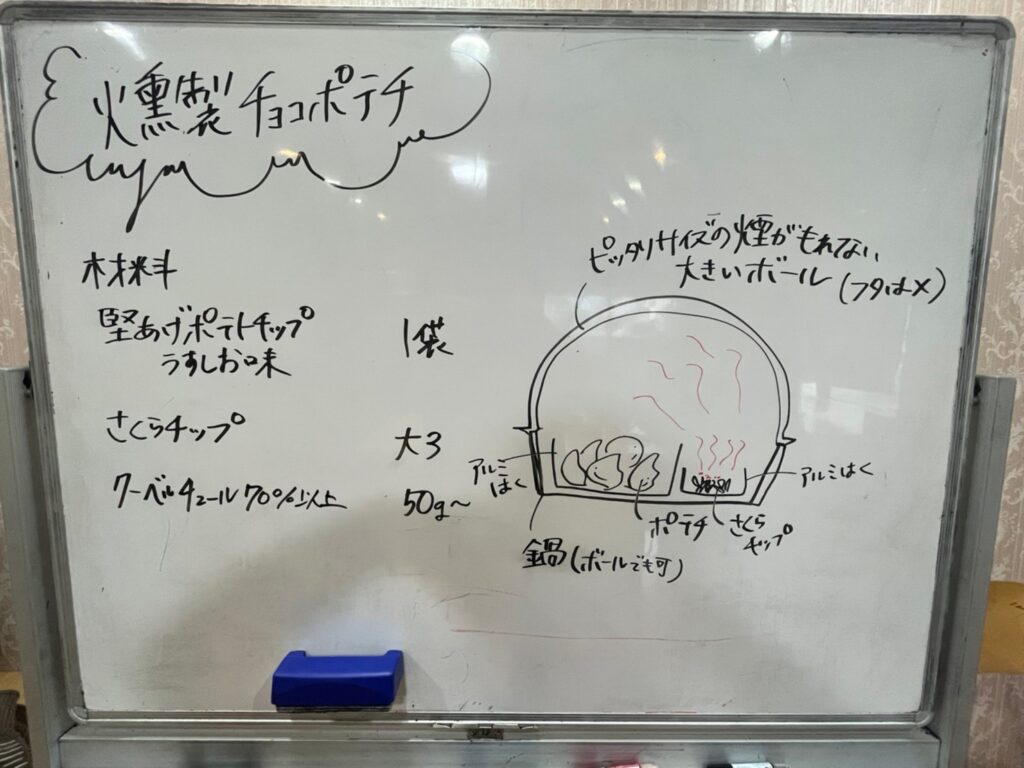 燻製チョコポテチ
材料
堅あげポテトチップ 1袋
うすしお味
さくらチップ 大3
クーベルチュール70%以上 50g~
ピッタリサイズの煙がもれない
大きいボール(フタは×)
アルミ
はく
アルミはく
ポテチ
さくら
チップ
鍋(ボールでも可)